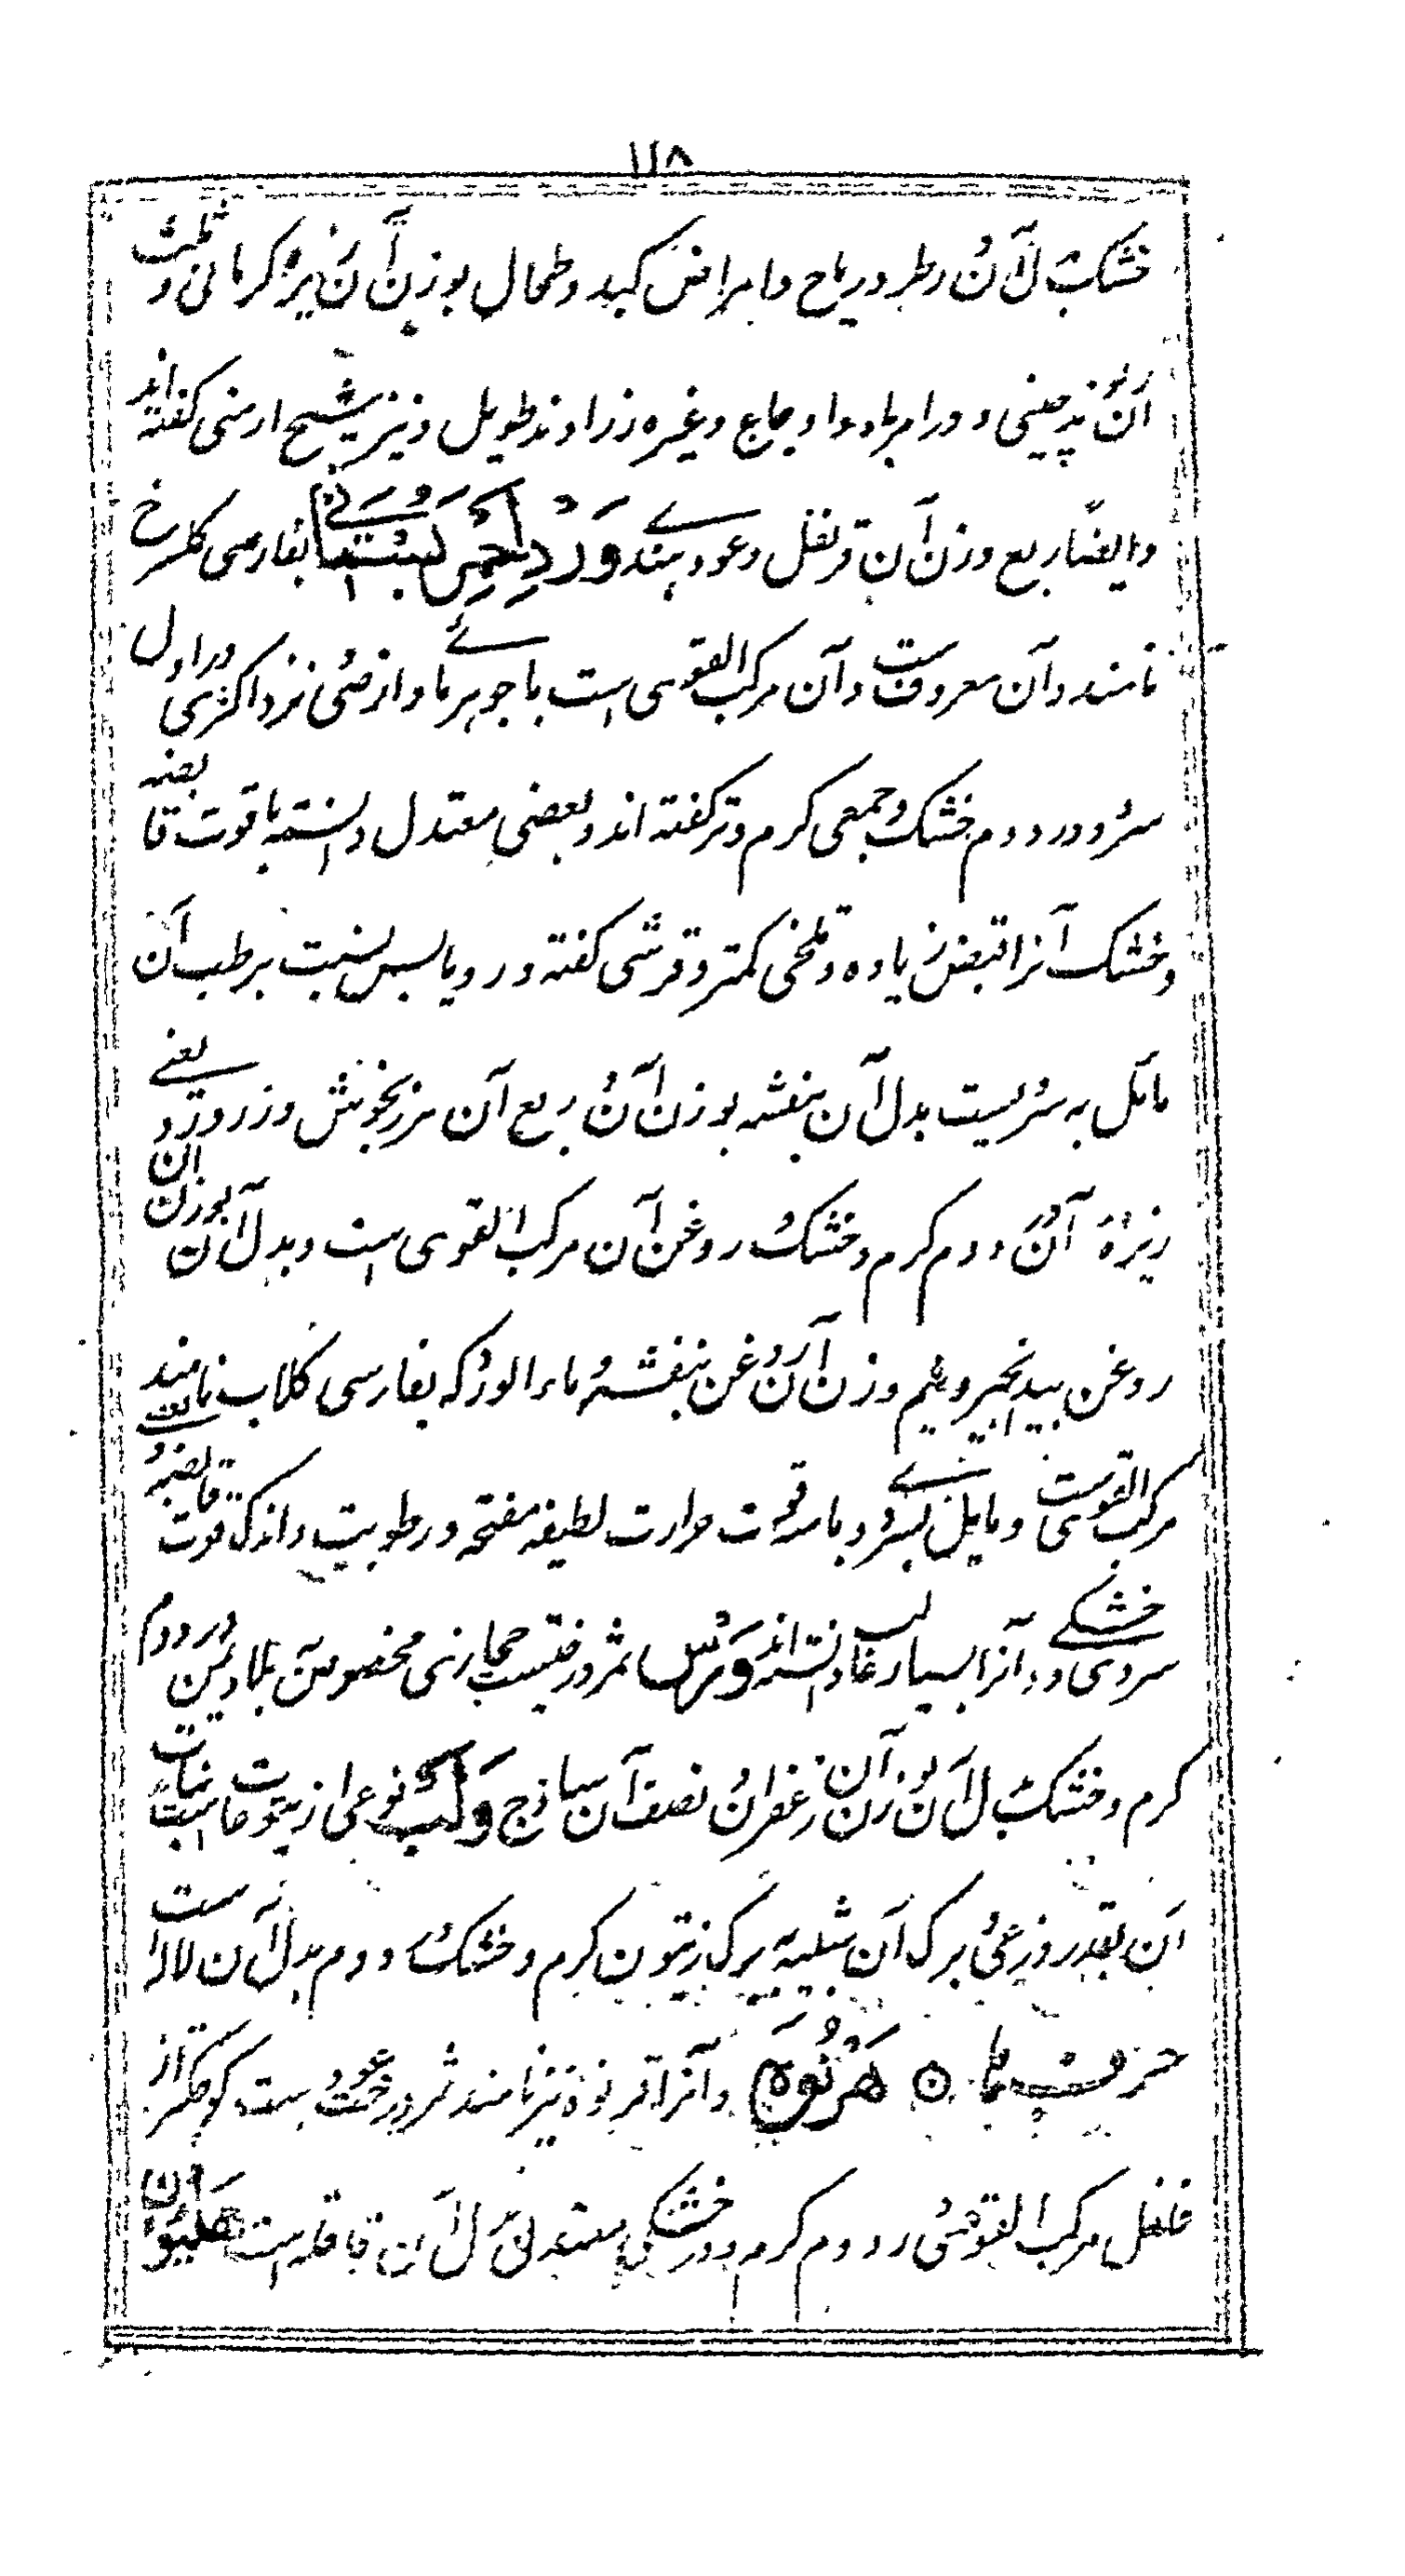 ۱۱۸
خشک بدل آن در طرد ریاح و امراض کبد و طحال بوزن آن زیره کرمانی و ثلث
آن ریوند چینی و در امر باه و اوجاع وغیره زراوند طویل و نیز شیح ارمنی گفته اند
و ایضاً ربع وزن آن قرنفل و عود هندی وَرْدِ اَحمر بستانی بفارسی گل سرخ
نامند و آن معروف ست و آن مرکب القوی است با جوهر مائی و ارضی و نزد اکثری در اول
سرد و در دوم خشک و جمعی گرم و تر گفته اند و بعضی معتدل دانسته با قوت قابضه
و خشک آنرا قبض زیاده و تلخی کمتر و قرشی گفته ورد یابس نسبت برطب آن
مائل به سردیست بدل آن بنفشه بوزن آن و ربع آن مرزنجوش و زر ورد یعنی
زیره آن در دوم گرم و خشک و روغن آن مرکب القوی است و بدل آن بوزن آن
روغن بیدانجیر و نیم وزن آن روغن بنفشه و ماء الورد که بفارسی گلاب نامند
مرکب القوی ست و مایل بسردی و با قوت حرارت لطیفه مفتحه و رطوبیت و اندک قوت قابضه و
سردی و خشکی آنرا بسیار غالب دانسته اند وَرْس ثمر درختیست حجازی مخصوص بلاد یمن در دوم
گرم و خشک بدل آن بوزن آن زعفران و نصف آن ساذج وَلَب نوعی از یتوعات ست نبات
آن بقدر ذرعی و برگ آن شبیه ببرگ زیتون گرم و خشک در دوم بدل آن لالا است
حرف ها ہ هَرنُوَه و آنرا قرنوه نیز نامند ثمر درخت عود ست کوچکتر از
فلفل مرکب القوی در دوم گرم و در خشکی معتدل بدل آن قاقله است هلیون